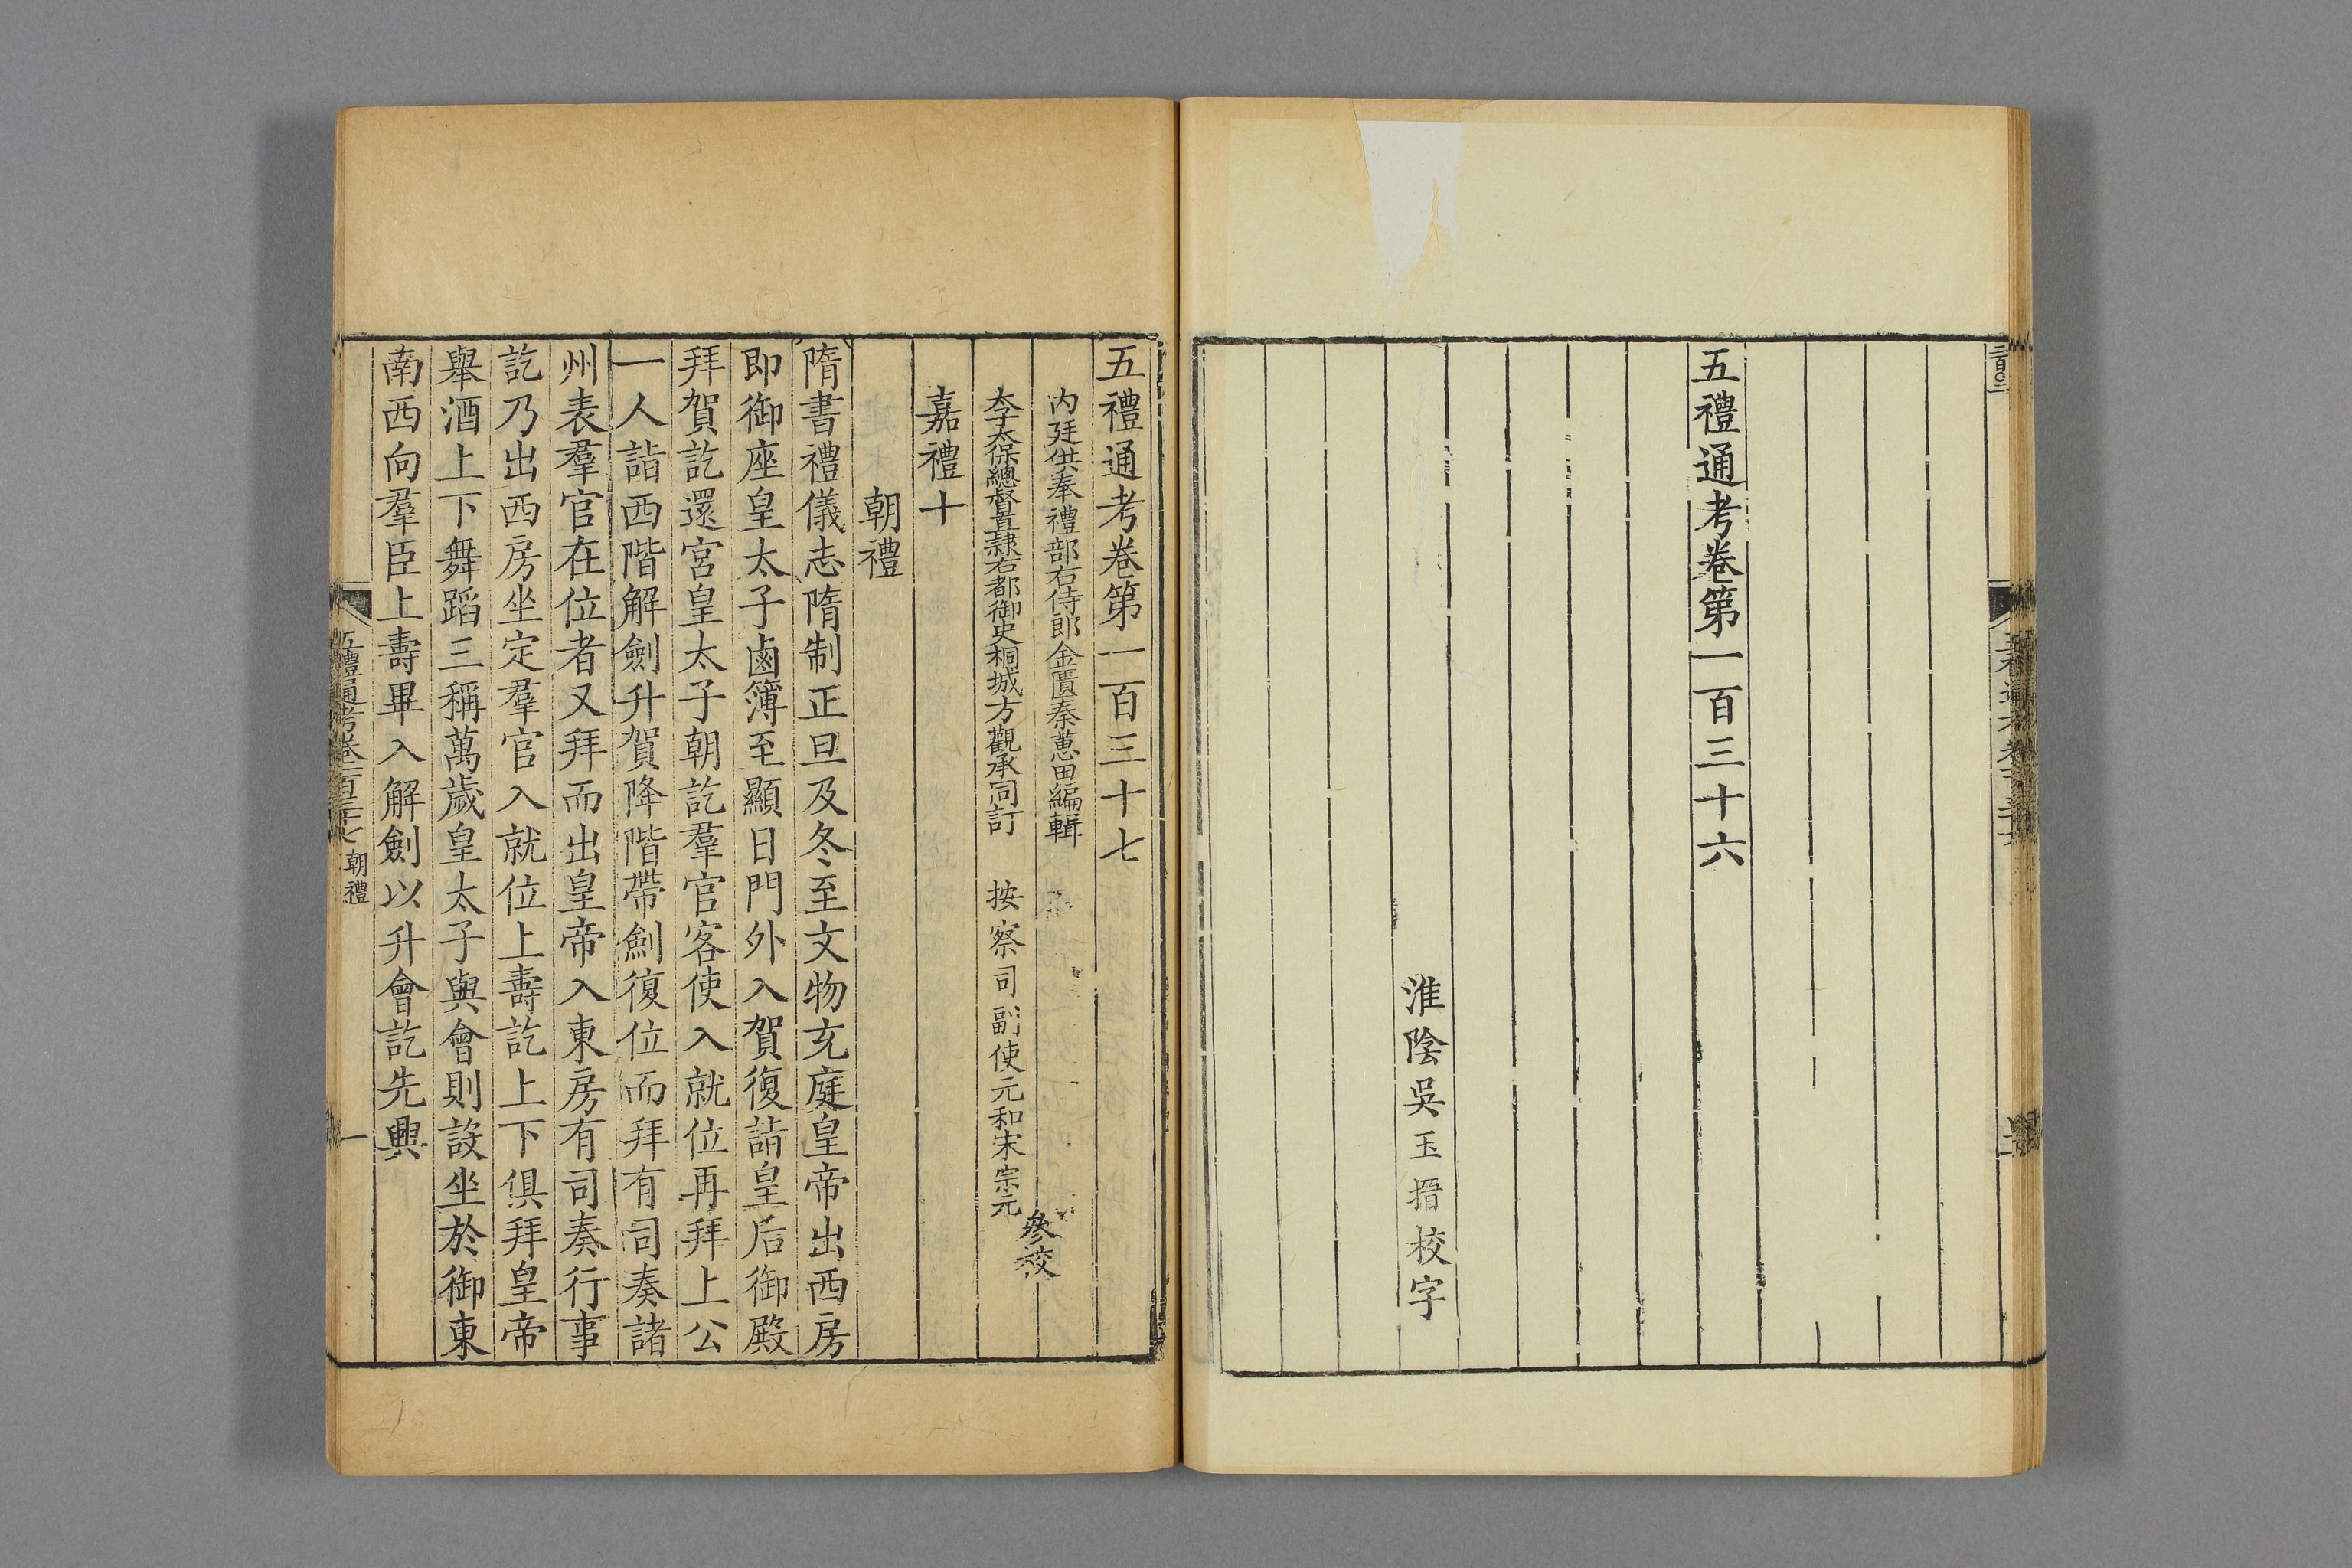 五禮通考卷第一百三十六
淮陰吳玉搢校字
五禮通考卷第一百三十七
內廷供奉禮部右侍郎金匱秦蕙田編輯
太子太保總督直隸右都御史桐城方觀承同訂
按察司副使元和宋宗元
參校
嘉禮十
朝禮
隋書禮儀志隋制正旦及冬至文物充庭皇帝出西房
即御座皇太子鹵簿至顯日門外入賀復詣皇后御殿
拜賀訖還宮皇太子朝訖羣官客使入就位再拜上公
一人詣西階解劍升賀降階帶劍復位而拜有司奏諸
州表羣官在位者又拜而出皇帝入東房有司奏行事
訖乃出西房坐定羣官入就位上壽訖上下俱拜皇帝
舉酒上下舞蹈三稱萬歲皇太子與會則設坐於御東
南西向羣臣上壽畢入解劍以升會訖先興
五禮通考卷一百三十七 朝禮 一